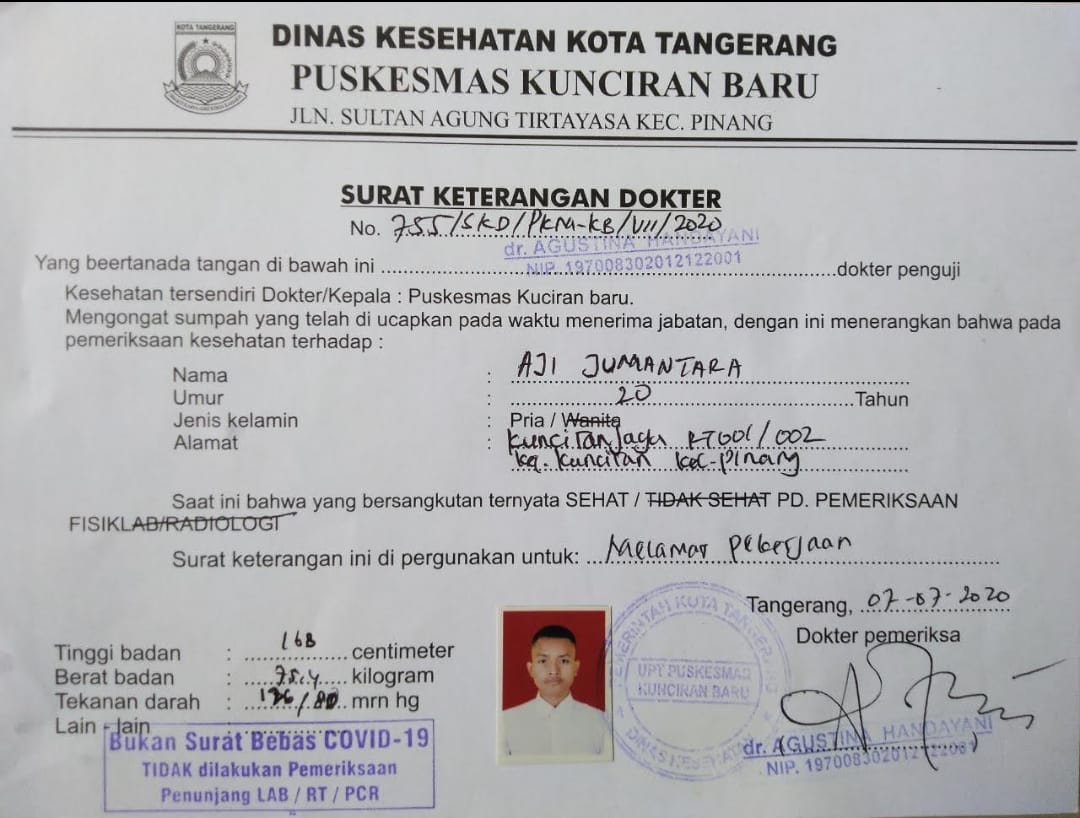 KOTA TANGERANG
DINAS KESEHATAN KOTA TANGERANG
PUSKESMAS KUNCIRAN BARU
JLN. SULTAN AGUNG TIRTAYASA KEC. PINANG
SURAT KETERANGAN DOKTER
No. 755/SKD/PKM-KB/VII/2020
dr. AGUSTINA HANDAYANI
NIP. 197008302012122001
Yang beertanada tangan di bawah ini ..... dokter penguji
Kesehatan tersendiri Dokter/Kepala : Puskesmas Kuciran baru.
Mengongat sumpah yang telah di ucapkan pada waktu menerima jabatan, dengan ini menerangkan bahwa pada
pemeriksaan kesehatan terhadap :
Nama : AJI JUMANTARA
Umur : 20 Tahun
Jenis kelamin : Pria / Wanita
Alamat : Kunciran Jaya RT001/002
Kq. Kunciran Kec-Pinang
Saat ini bahwa yang bersangkutan ternyata SEHAT / TIDAK SEHAT PD. PEMERIKSAAN
FISIKLAB/RADIOLOGI
Surat keterangan ini di pergunakan untuk: Melamar Pekerjaan
Tangerang, 07-07-2020
Dokter pemeriksa
Tinggi badan : 168 centimeter
Berat badan : 75.4 kilogram
Tekanan darah : 136/80 mrn hg
Lain - lain
Bukan Surat Bebas COVID-19
TIDAK dilakukan Pemeriksaan
Penunjang LAB / RT / PCR
PEMERINTAH KOTA TANGERANG
UPT PUSKESMAS
KUNCIRAN BARU
DINAS KESEHATAN
dr. AGUSTINA HANDAYANI
NIP. 197008302012122001